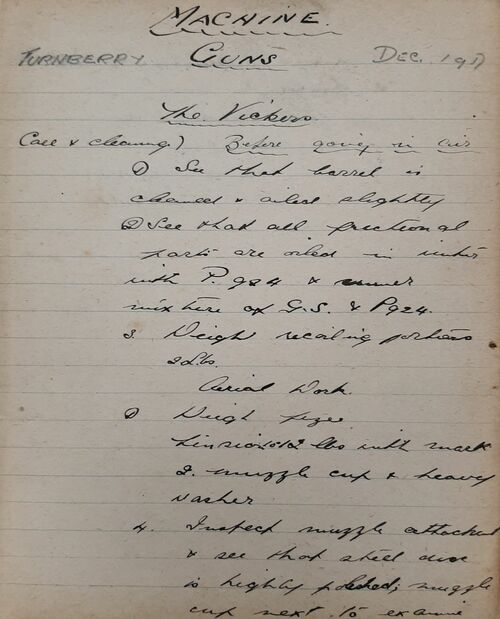 MACHINE
TURNBERRY. GUNS DEC. 191
The Vickers
Care & cleaning) Before going in air
① See that barrel is
cleaned & oiled slightly
② See that all frictional
parts are oiled in winter
with P.924 & summer
mixture of G.S. & P924.
3. Weigh recoiling portions
Aerial Work.
Weigh fuzee
lbs with mark
2. muzzle cup & heavy
washer
4. Inspect muzzle attachment
& see that steel disc
is highly polished; muzzle
cup next to examine